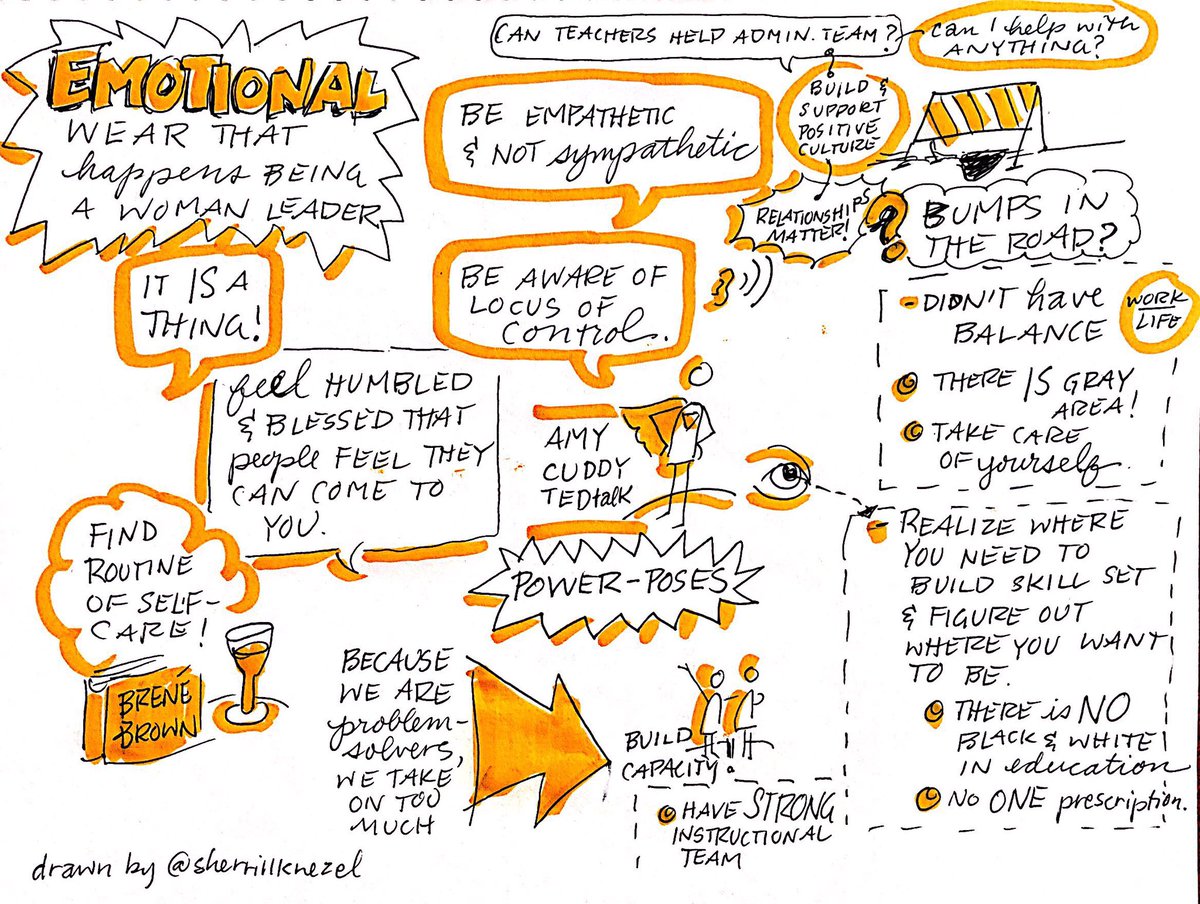 EMOTIONAL
WEAR THAT
happens BEING
A WOMAN LEADER
IT IS A
THING!
feel HUMBLED
& BLESSED THAT
people FEEL THEY
CAN COME TO
YOU.
FIND
ROUTINE
OF SELF-
CARE!
BRENÉ
BROWN
BE EMPATHETIC
& NOT sympathetic
BE AWARE OF
LOCUS OF
Control.
AMY
CUDDY
TEDtalk
POWER-POSES
BECAUSE
WE ARE
problem-
solvers,
WE TAKE
ON TOO
MUCH
BUILD
CAPACITY.
HAVE STRONG
INSTRUCTIONAL
TEAM
CAN TEACHERS HELP ADMIN. TEAM?
Can I help with
ANYTHING?
BUILD &
SUPPORT
POSITIVE
CULTURE
RELATIONSHIPS
MATTER!
? BUMPS IN
THE ROAD?
- DIDN'T have
BALANCE
WORK
LIFE
THERE IS GRAY
AREA!
TAKE CARE
OF yourself.
- REALIZE WHERE
YOU NEED TO
BUILD SKILL SET
& FIGURE OUT
WHERE YOU WANT
TO BE.
THERE is NO
BLACK & WHITE
IN education
NO ONE prescription.
drawn by @sherrillknezel